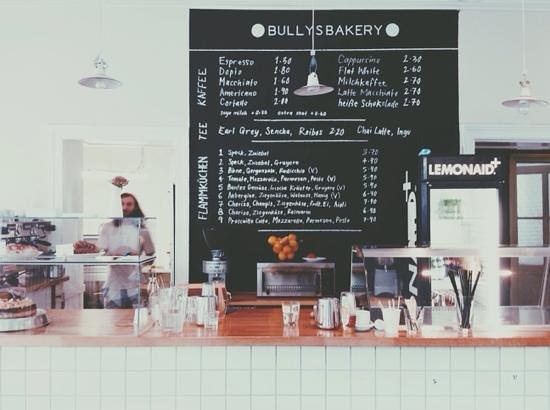 BULLYSBAKERY
KAFFEE
Espresso 1.50
Dopio 1.80
Macchiato 1.60
Americano 1.90
Cortado 2.00
Cappuccino 2.30
Flat White 2.60
Milchkaffee 2.70
Latte Macchiato 2.70
heiße Schokolade 2.70
soya milch +0.30 extra shot +0.50
TEE
Earl Grey, Sencha, Roibos 2.20 Chai Latte, Ingw
FLAMMKUCHEN
1 Speck, Zwiebel 3.70
2 Speck, Zwiebel, Gruyere 4.90
3 Birne, Gorgonzola, Radicchio (V)
4 Tomate, Mozzarella, Parmesan, Pesto (V)
5 Buntes Gemüse, frische Kräuter, Gruyere (V)
6 Aubergine, Ziegenkäse, Walnuss, Honig (V)
7 Chorizo, Ziegenkäse,
8 Chorizo, Ziegenkäse, Rosmarin 6.90
9 Prosciutto Cotto, Mozzarella, Parmesan, Pesto 6.90
LEMONAID+